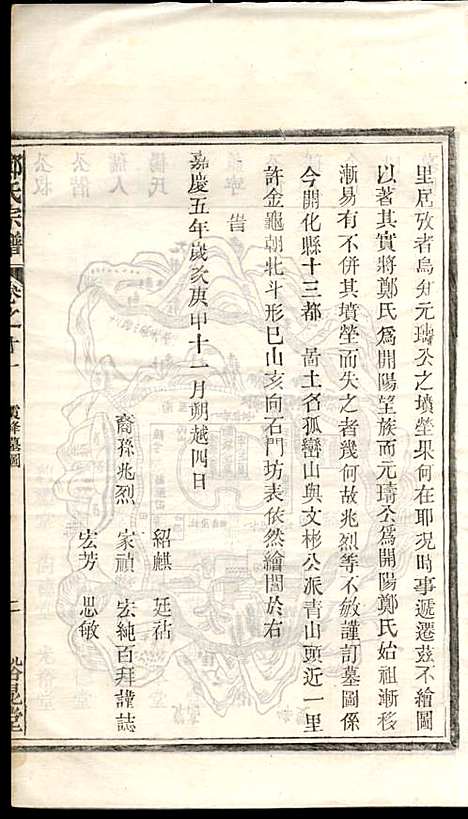 里居攷者烏知元璹公之墳塋果何在耶况時事遞遷茲不繪圖
以著其實將鄭氏爲開陽望族而元璹公爲開陽鄭氏始祖漸移
漸易有不併其墳塋而失之者幾何故兆烈等不敏謹訂墓圖係
今開化縣十三都 啚土名孤巒山與文彬公派青山頭近一里
許金龜朝北斗形巳山亥向石門坊表依然繪圖於右
告
嘉慶五年歲次庚申十一月朔越四日
紹麒 廷祜
裔孫兆烈 家禎 宏純百拜謹誌
宏芳 思敏
鄭氏宗譜 卷之十一 霞峰墓圖 二